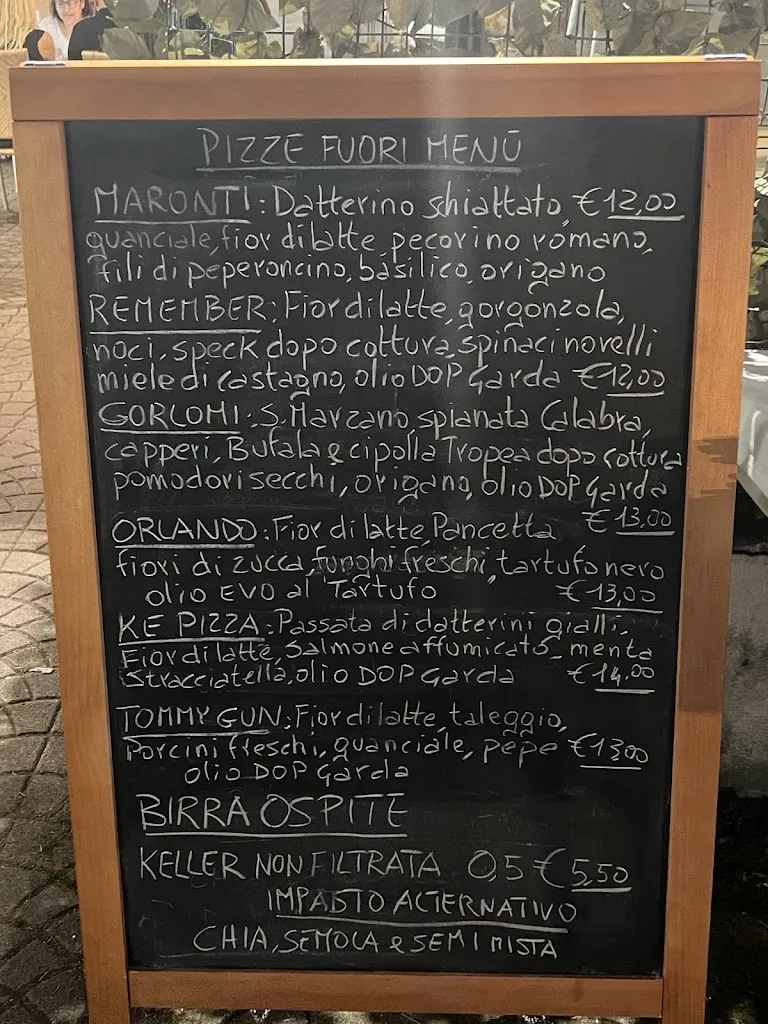 PIZZE FUORI MENÙ
MARONTI: Datterino schiattato, € 12,00
guanciale, fior di latte, pecorino romano,
fili di peperoncino, basilico, origano
REMEMBER: Fior di latte, gorgonzola,
noci, speck dopo cottura, spinaci novelli
miele di castagno, olio DOP Garda € 12,00
GORLOMI: S. Marzano, spianata Calabra,
capperi, Bufala e cipolla Tropea dopo cottura
pomodori secchi, origano, olio DOP Garda
€ 13,00
ORLANDO: Fior di latte, Pancetta
fiori di zucca, funghi freschi, tartufo nero
olio EVO al Tartufo € 13,00
KE PIZZA: Passata di datterini gialli,
Fior di latte, Salmone affumicato, menta
Stracciatella, olio DOP Garda € 14,00
TOMMY GUN: Fior di latte, taleggio,
Porcini freschi, guanciale, pepe € 13,00
olio DOP Garda
BIRRA OSPITE
KELLER NON FILTRATA 0,5 € 5,50
IMPASTO ALTERNATIVO
CHIA, SEMOLA e SEMI MISTA